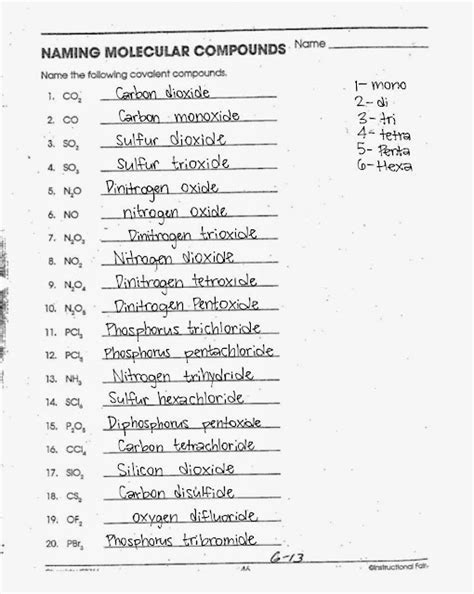 NAMING MOLECULAR COMPOUNDS Name
Name the following covalent compounds.
1. CO₂ Carbon dioxide
2. CO Carbon monoxide
3. SO₂ Sulfur dioxide
4. SO₃ Sulfur trioxide
5. N₂O Dinitrogen oxide
6. NO nitrogen oxide
7. N₂O₃ Dinitrogen trioxide
8. NO₂ Nitrogen dioxide
9. N₂O₄ Dinitrogen tetroxide
10. N₂O₅ Dinitrogen Pentoxide
11. PCl₃ Phosphorus trichloride
12. PCl₅ Phosphorus pentachloride
13. NH₃ Nitrogen trihydride
14. SCl₆ Sulfur hexachloride
15. P₂O₅ Diphosphorus pentoxide
16. CCl₄ Carbon tetrachloride
17. SiO₂ Silicon dioxide
18. CS₂ Carbon disulfide
19. OF₂ oxygen difluoride
20. PBr₃ Phosphorus tribromide
1- mono
2- di
3- tri
4- tetra
5- Penta
6- Hexa
6-13
©Instructional Fair